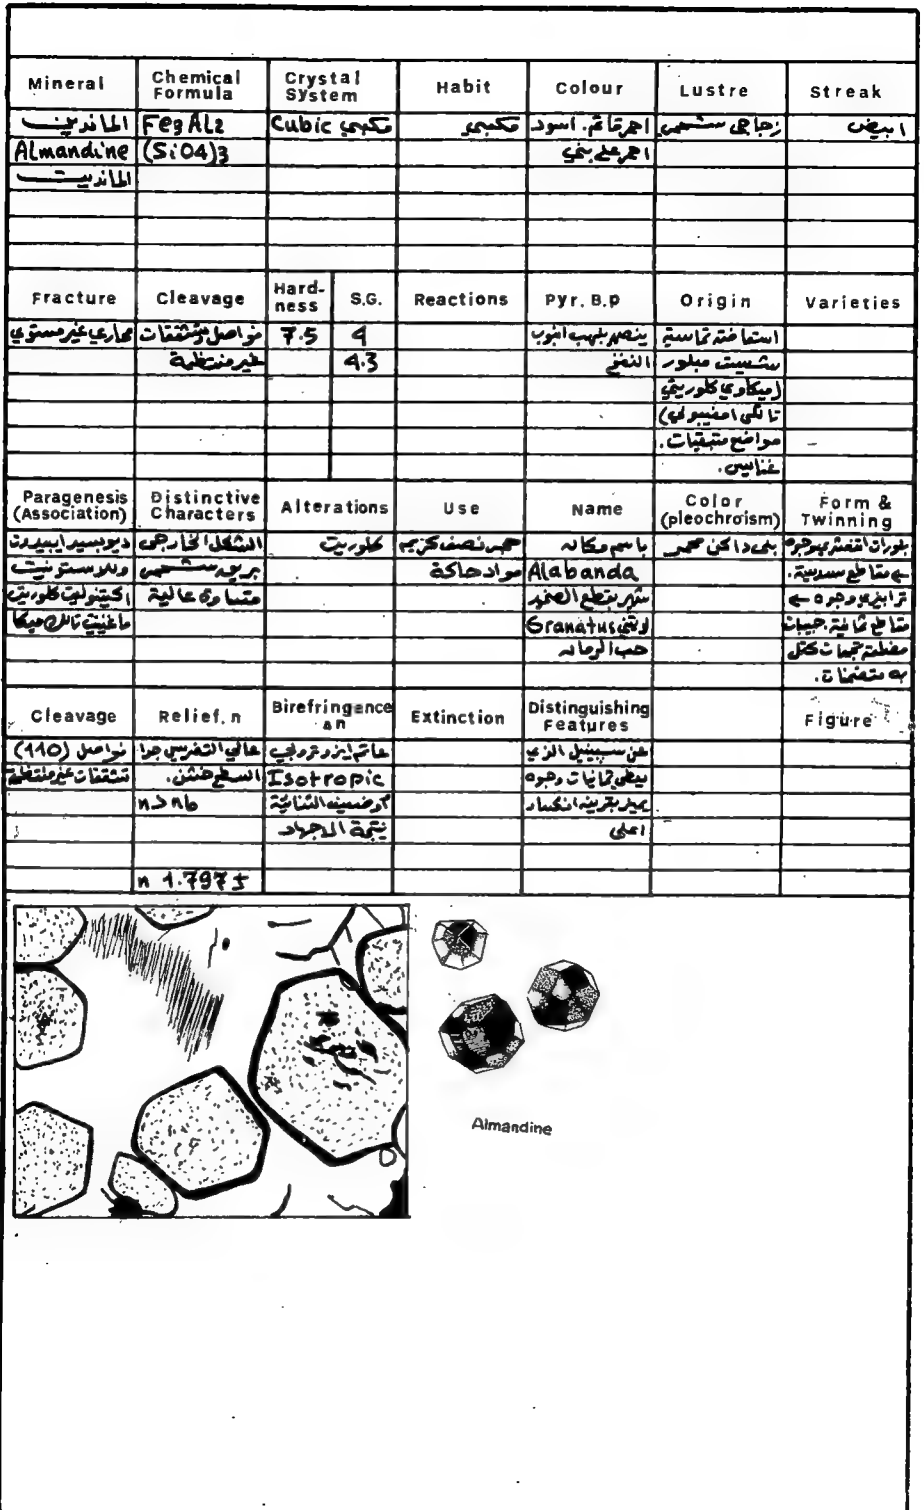 Mineral Chemical Formula Crystal System Habit Colour Lustre Streak
الماندين Fe3Al2 Cubic مكعبي مكعبي احمر قاتم. اسود زجاجي شحمي ابيض
Almandine (SiO4)3 احمر على بني
الماندييت
Fracture Cleavage Hard-ness S.G. Reactions Pyr. B.p Origin Varieties
محاري غير مستوي فواصل وتشققات 7.5 4 ينصهر بلهب انبوب استحالة تماسية
غير منتظمة 4.3 النفخ شيست مبلور
(ميكاوي كلوريتي
تالكي امفيبولي)
مواضع متبقيات.
غنايس.
Paragenesis (Association) Distinctive Characters Alterations Use Name Color (pleochroism) Form & Twinning
ديوبسيد ايبيدوت الشكل الخارجي كلوريت حجر نصف كريم باسم مكان بني داكن محمر
بريق شحمي مواد حاكة Alabanda مقاطع سدسية.
اكتينوليت كلوريت عالية
تالك ميكا Granatus مقاطع ثمانية. حبيبات
حب الرمان
Cleavage Relief, n Birefringence an Extinction Distinguishing Features Figure
فواصل (110) عالي التضريس جدا ايزوتروبي عن سبينيل الذي
تشققات غير منتظمة السطح خشن. Isotropic يعطي ثمانيات وجوه
n>nb او ضعيف الثنائية يميز بقرينة انكسار
نتيجة الاجهاد اعلى
n 1.797±
Almandine